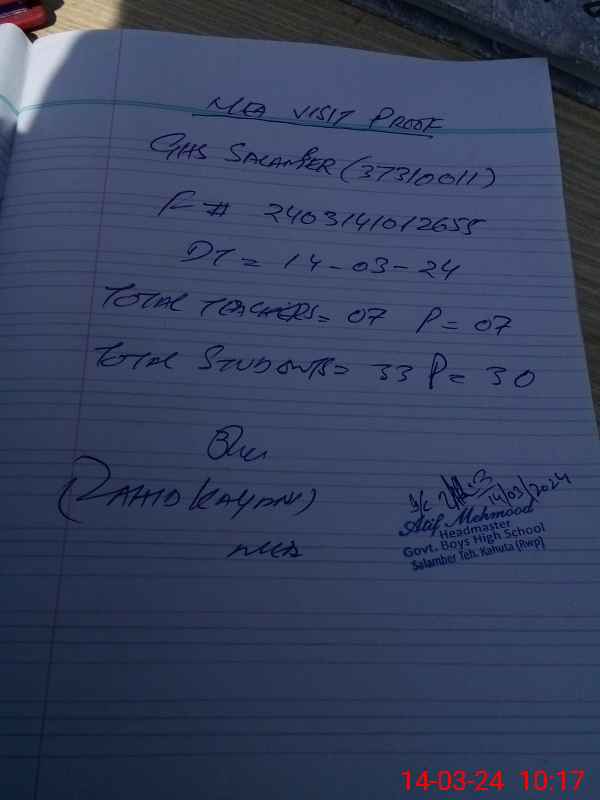 MEA VISIT PROOF
GHS SALAMBER (37310011)
F # 2403141012655
DT = 14-03-24
TOTAL TEACHERS = 07 P = 07
TOTAL STUDENTS = 33 P = 30
(ZAHID KAYANI)
MEA
I/c
14/03/2024
Atif Mehmood
Headmaster
Govt. Boys High School
Salamber Teh. Kahuta (Rwp)
14-03-24 10:17